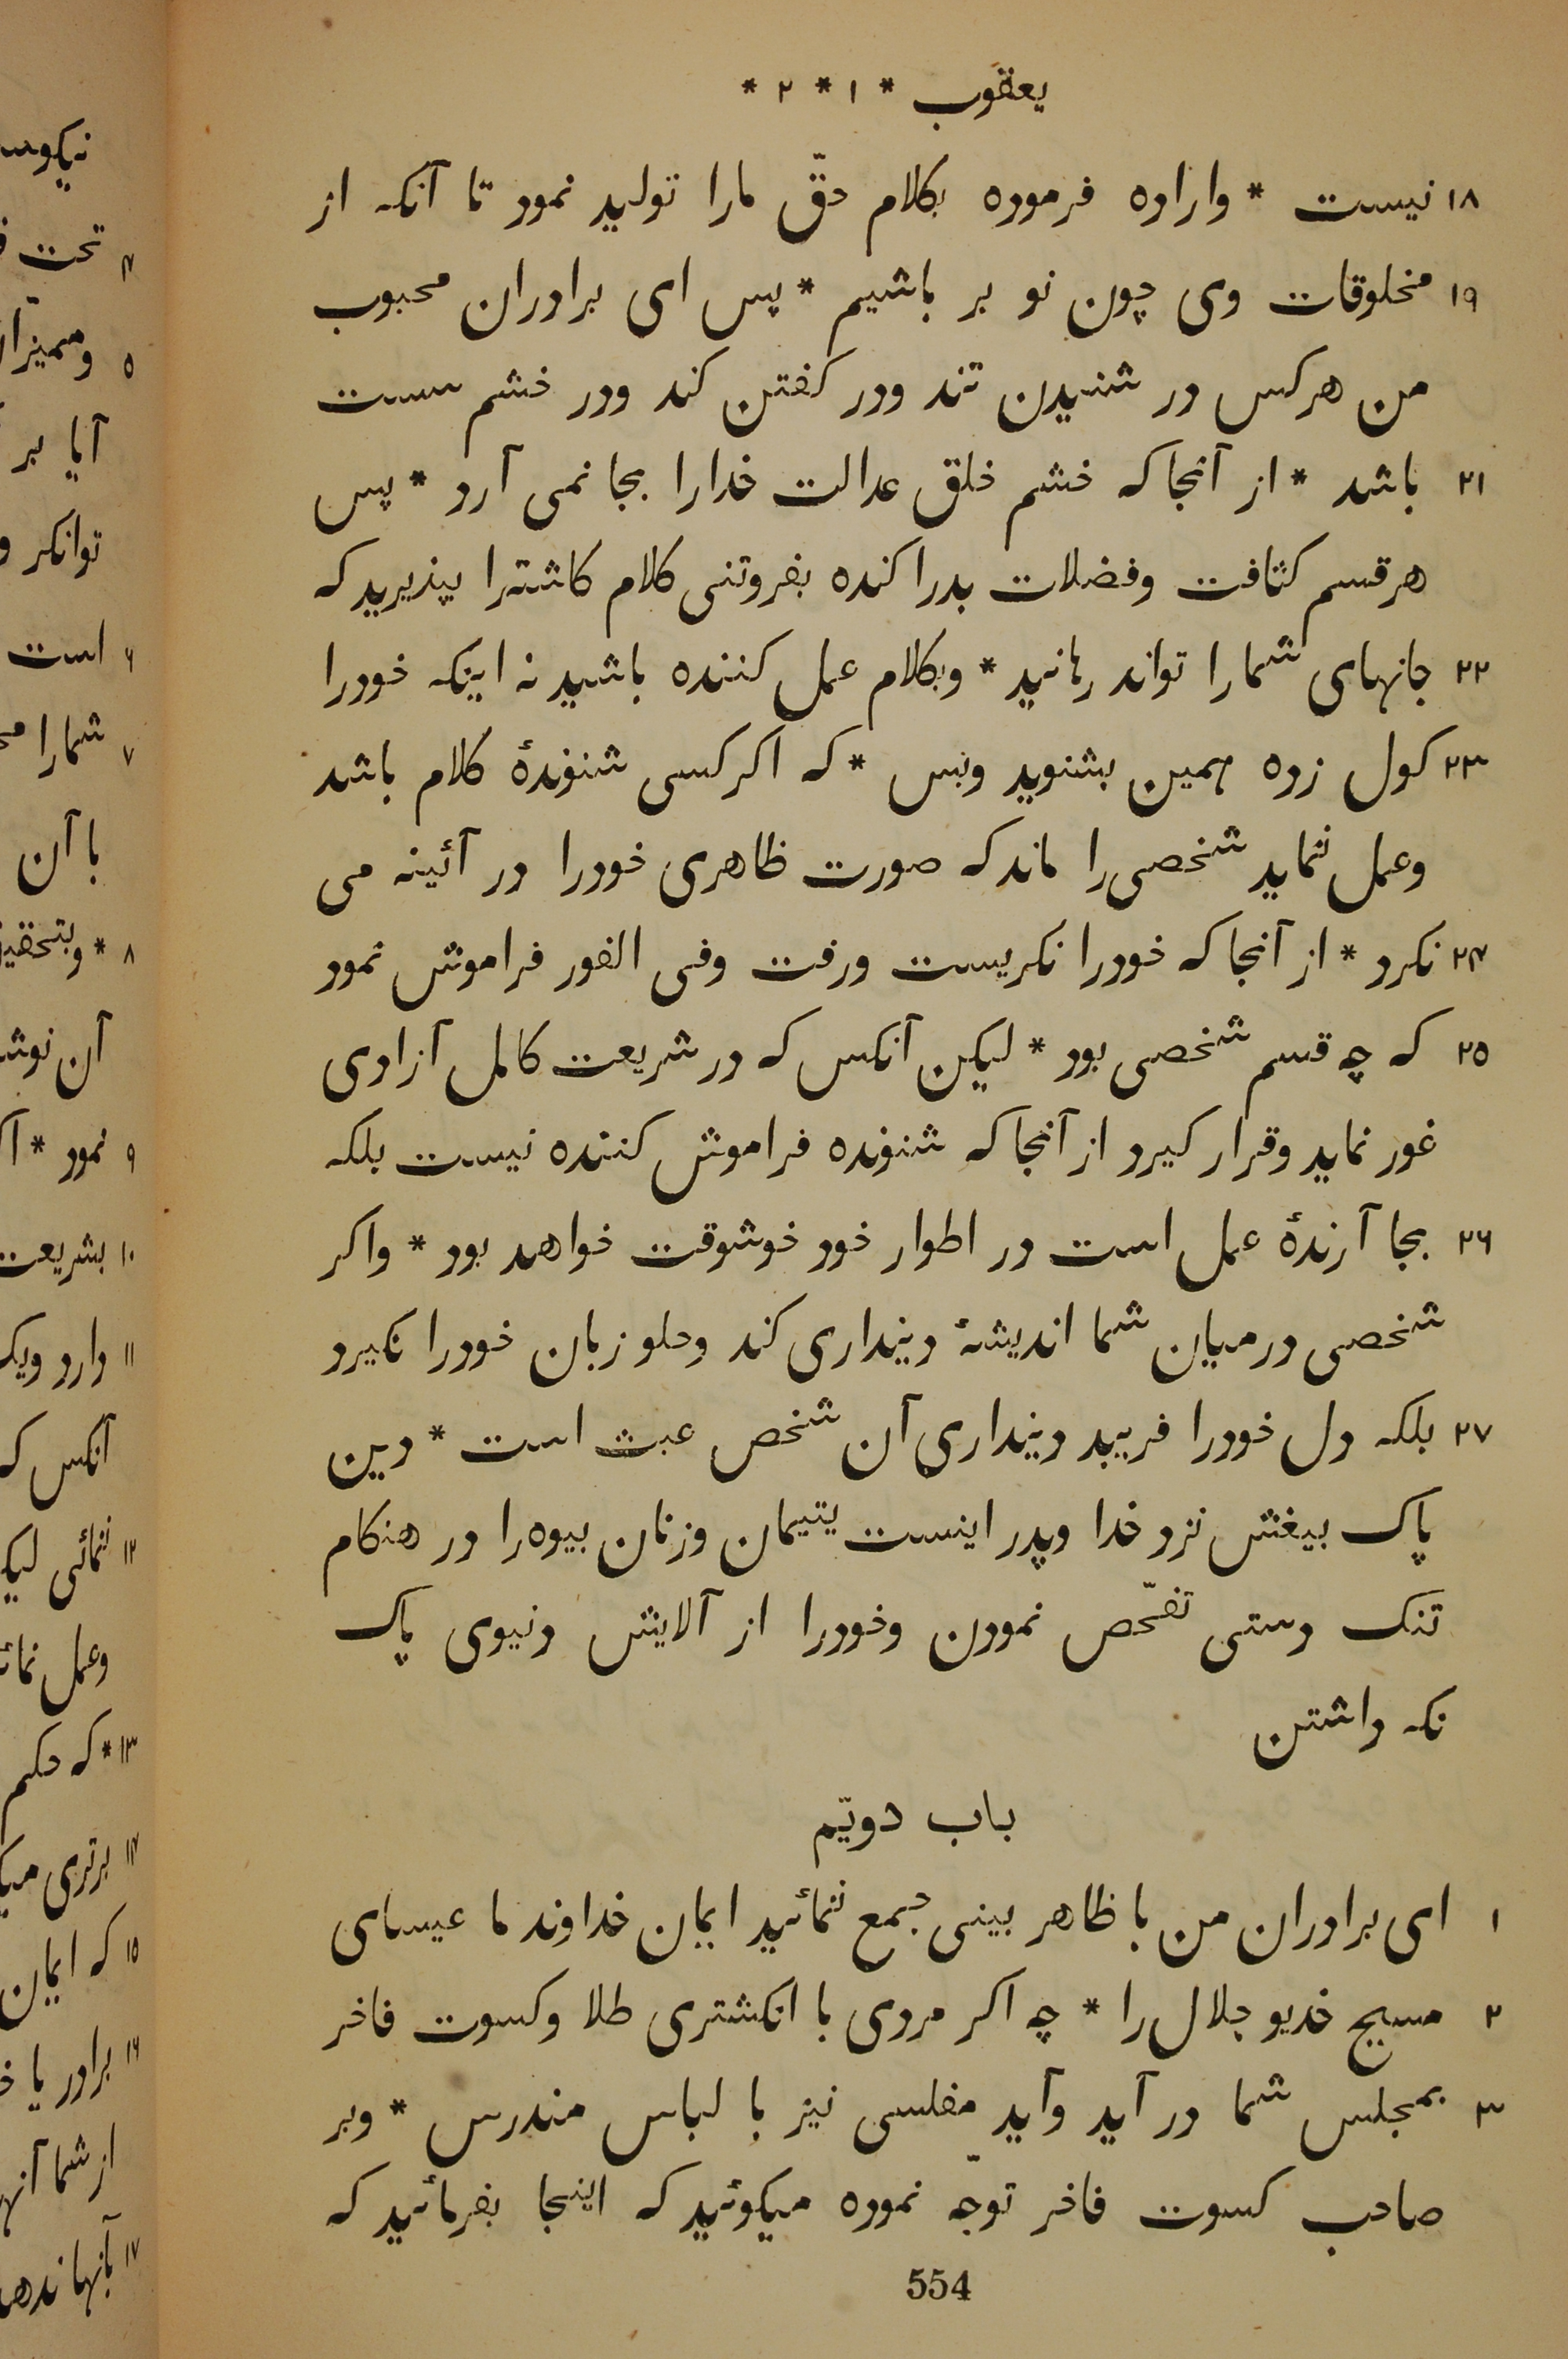 یعقوب * ۱ * ۲ *
۱۸ نیست * واراده فرموده بکلام حقّ مارا تولید نمود تا آنکه از
۱۹ مخلوقات وی چون نو بر باشیم * پس ای برادران محبوب
من هرکس در شنیدن تند ودر کفتن کند ودر خشم سست
۲۱ باشد * از آنجا که خشم خلق عدالت خدارا بجا نمی آرد * پس
هر قسم کثافت وفضلات بدرا کنده بفروتنی کلام کاشته‌را بپذیرید که
۲۲ جانهای شمارا تواند رهانید * وبکلام عمل کننده باشید نه اینکه خودرا
۲۳ کول زده همین بشنوید وبس * که اکر کسی شنوندهٔ کلام باشد
وعمل ننماید شخصی را ماند که صورت ظاهری خودرا در آئینه می
۲۴ نکرد * از آنجا که خودرا نکریست ورفت وفی الفور فراموش نمود
۲۵ که چه قسم شخصی بود * لیکن آنکس که در شریعت کامل آزادی
غور نماید وقرار کیرد از آنجا که شنونده فراموش کننده نیست بلکه
۲۶ بجا آرندهٔ عمل است در اطوار خود خوشوقت خواهد بود * واکر
شخصی در میان شما اندیشهٔ دینداری کند وجلو زبان خودرا نکیرد
۲۷ بلکه دل خودرا فریبد دینداری آن شخص عبث است * دین
پاک بیغش نزد خدا وپدر اینست یتیمان وزنان بیوه‌را در هنکام
تنک دستی تفحّص نمودن وخودرا از آلایش دنیوی پاک
نکه داشتن
باب دویّم
۱ ای برادران من با ظاهر بینی جمع ننمائید ایمان خداوند ما عیسای
۲ مسیح خدیو جلال را * چه اکر مردی با انکشتری طلا وکسوت فاخر
۳ بمجلس شما در آید وآید مفلسی نیز با لباس مندرس * وبر
صاحب کسوت فاخر توجّه نموده میکوئید که اینجا بفرمائید که
554